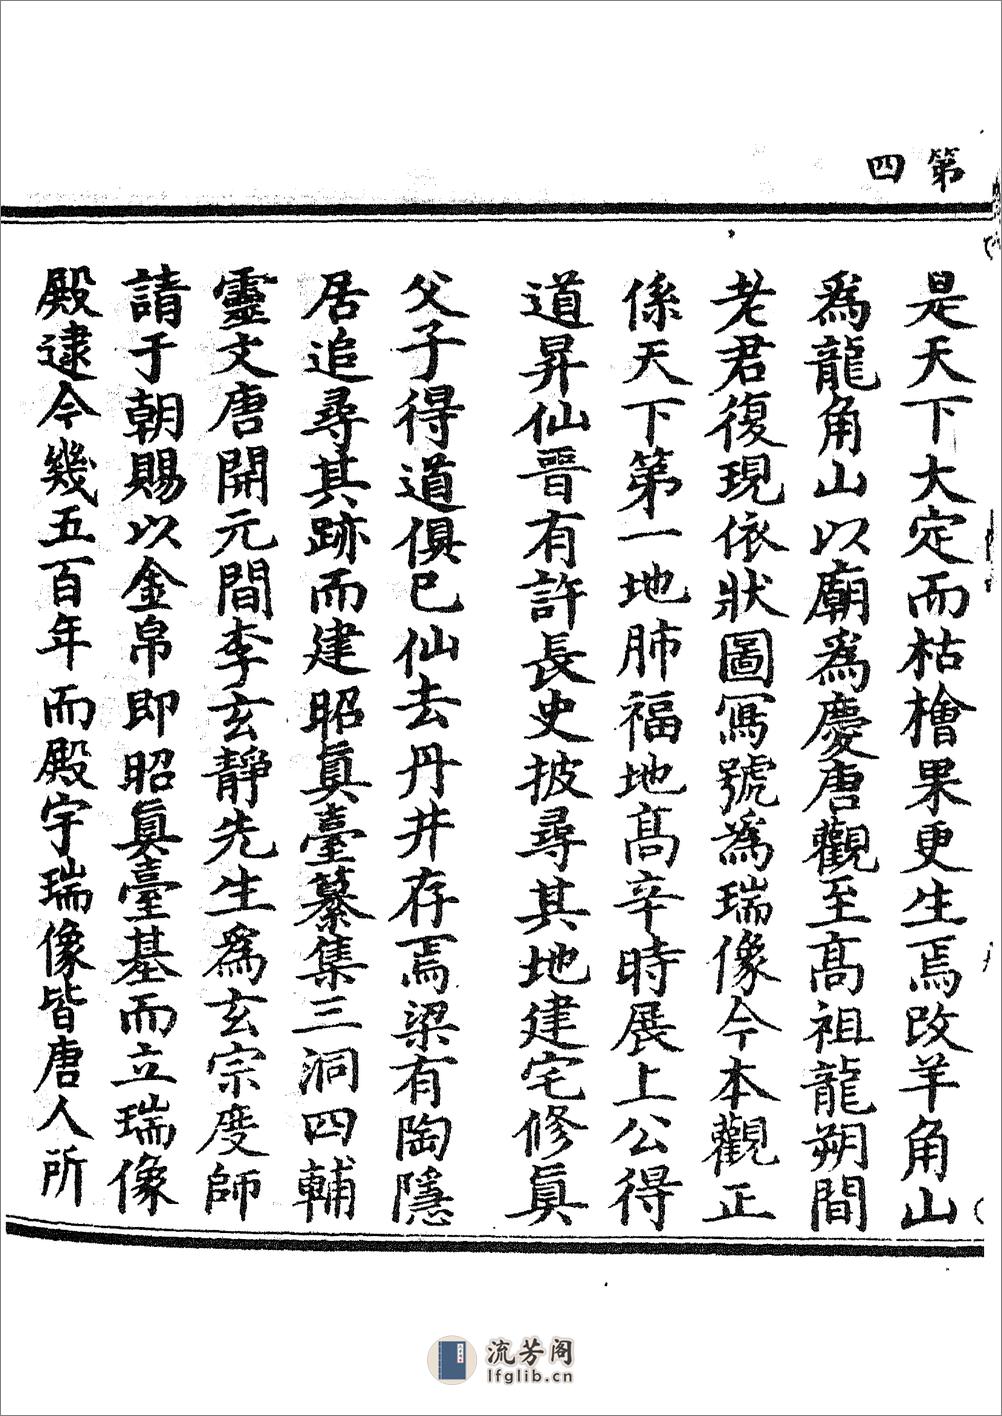 第四
是天下大定而枯檜果更生焉改羊角山
爲龍角山以廟爲慶唐觀至高祖龍朔間
老君復現依狀圖寫號爲瑞像今本觀正
係天下第一地肺福地高辛時展上公得
道昇仙晉有許長史披尋其地建宅修眞
父子得道俱已仙去丹井存焉梁有陶隱
居追尋其跡而建昭眞臺纂集三洞四輔
靈文唐開元間李玄靜先生爲玄宗度師
請于朝賜以金帛即昭眞臺基而立瑞像
殿逮今幾五百年而殿宇瑞像皆唐人所
流芳阁
lfglib.cn